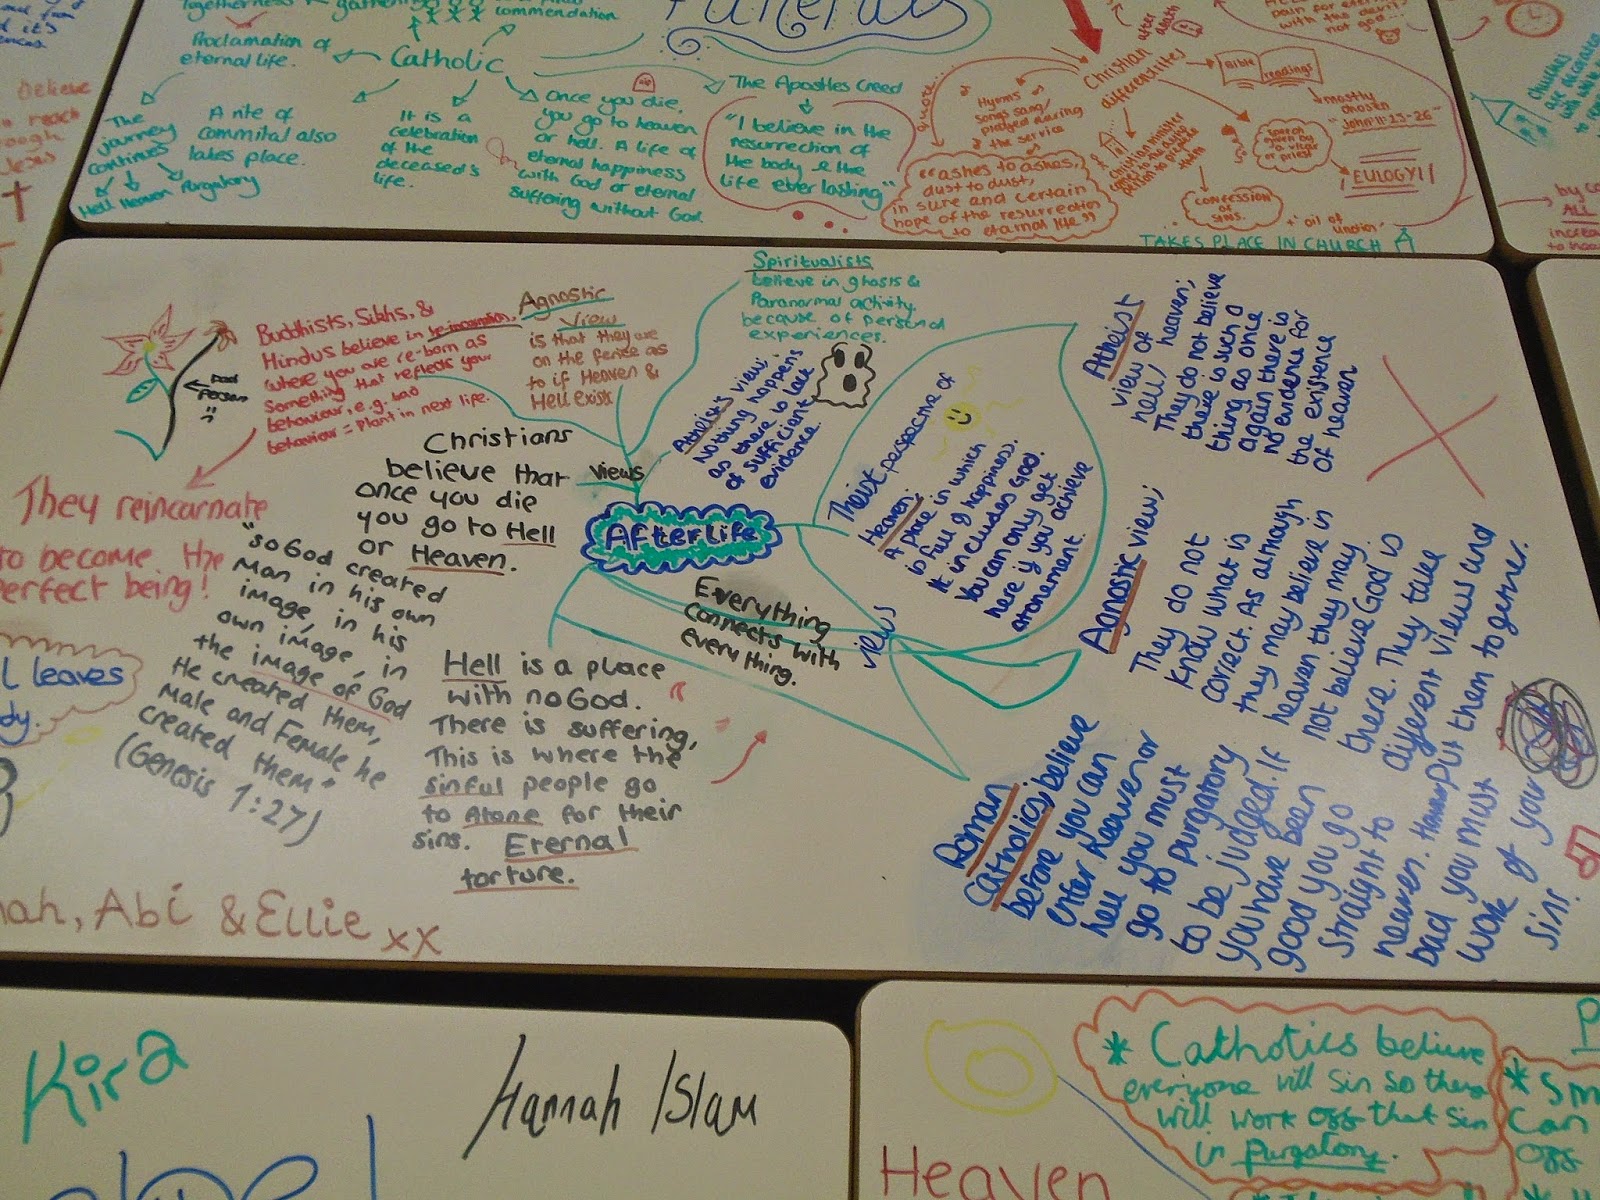 Togetherness
gathering
commendation
Funerals
Proclamation of
eternal life.
Catholic
The
journey
continues
Hell Heaven Purgatory
A rite of
commital also
takes place.
It is a
celebration
of the
deceased's
life.
Once you die,
you go to heaven
or hell. A life of
eternal happiness
with God or eternal
suffering without God.
The Apostles Creed
"I believe in the
resurrection of
the body & the
life everlasting"
quote
Hymns
songs sang/
played during
the service
"ashes to ashes,
dust to dust,
in sure and certain
hope of the resurrection
to eternal life"
Christian
differences
after
death
Christian minister
Bible readings
mostly
chosen
"John 11:23-26"
by a vicar
or priest
EULOGY!
CONFESSION
OF SINS.
+ 'oil of
unction'
TAKES PLACE IN CHURCH
pain for eternity
with the devil
not god...
Churches
are decorated
believe
reach
Jesus
by
ALL
Buddhists, Sikhs, &
Hindus believe in reincarnation,
where you are re-born as
something that reflects your
behaviour, e.g. bad
behaviour = plant in next life.
Dead
Person
They reincarnate
to become the
perfect being!
Agnostic
View
is that they are
on the fence as
to if Heaven &
Hell exists
Spiritualists
believe in ghosts &
Paranormal activity,
because of personal
experiences.
Atheist's view;
Nothing happens
as there is lack
of sufficient
evidence.
Christians
believe that
once you die
you go to Hell
or Heaven.
views
Afterlife
Everything
connects with
everything.
views
Theist perspective of
Heaven:
A place in which
is full of happiness.
It includes God.
You can only get
here if you achieve
atonement.
Atheist
view of
hell / heaven;
They do not believe
there is such a
thing as once
again there is
no evidence for
the existence
of heaven
Agnostic view;
They do not
know what is
correct. As although
they may believe in
heaven they may
not believe God is
there. They take
different views and
put them together.
Roman
Catholics; believe
before you can
enter heaven or
hell you must
go to purgatory
to be judged. If
you have been
good you go
straight to
heaven.
bad you must
work of your
sins.
"So God created
Man in his own
image, in his
own image, in
the image of God
He created them,
Male and Female he
created them"
(Genesis 1:27)
Hell is a place
with no God.
There is suffering,
This is where the
sinful people go
to Atone for their
sins. Eternal
torture.
leaves
Abi & Ellie xx
Kira
Hannah Islam
Heaven
* Catholics believe
everyone will sin so they
will work off that sin
in purgatory.
can
off